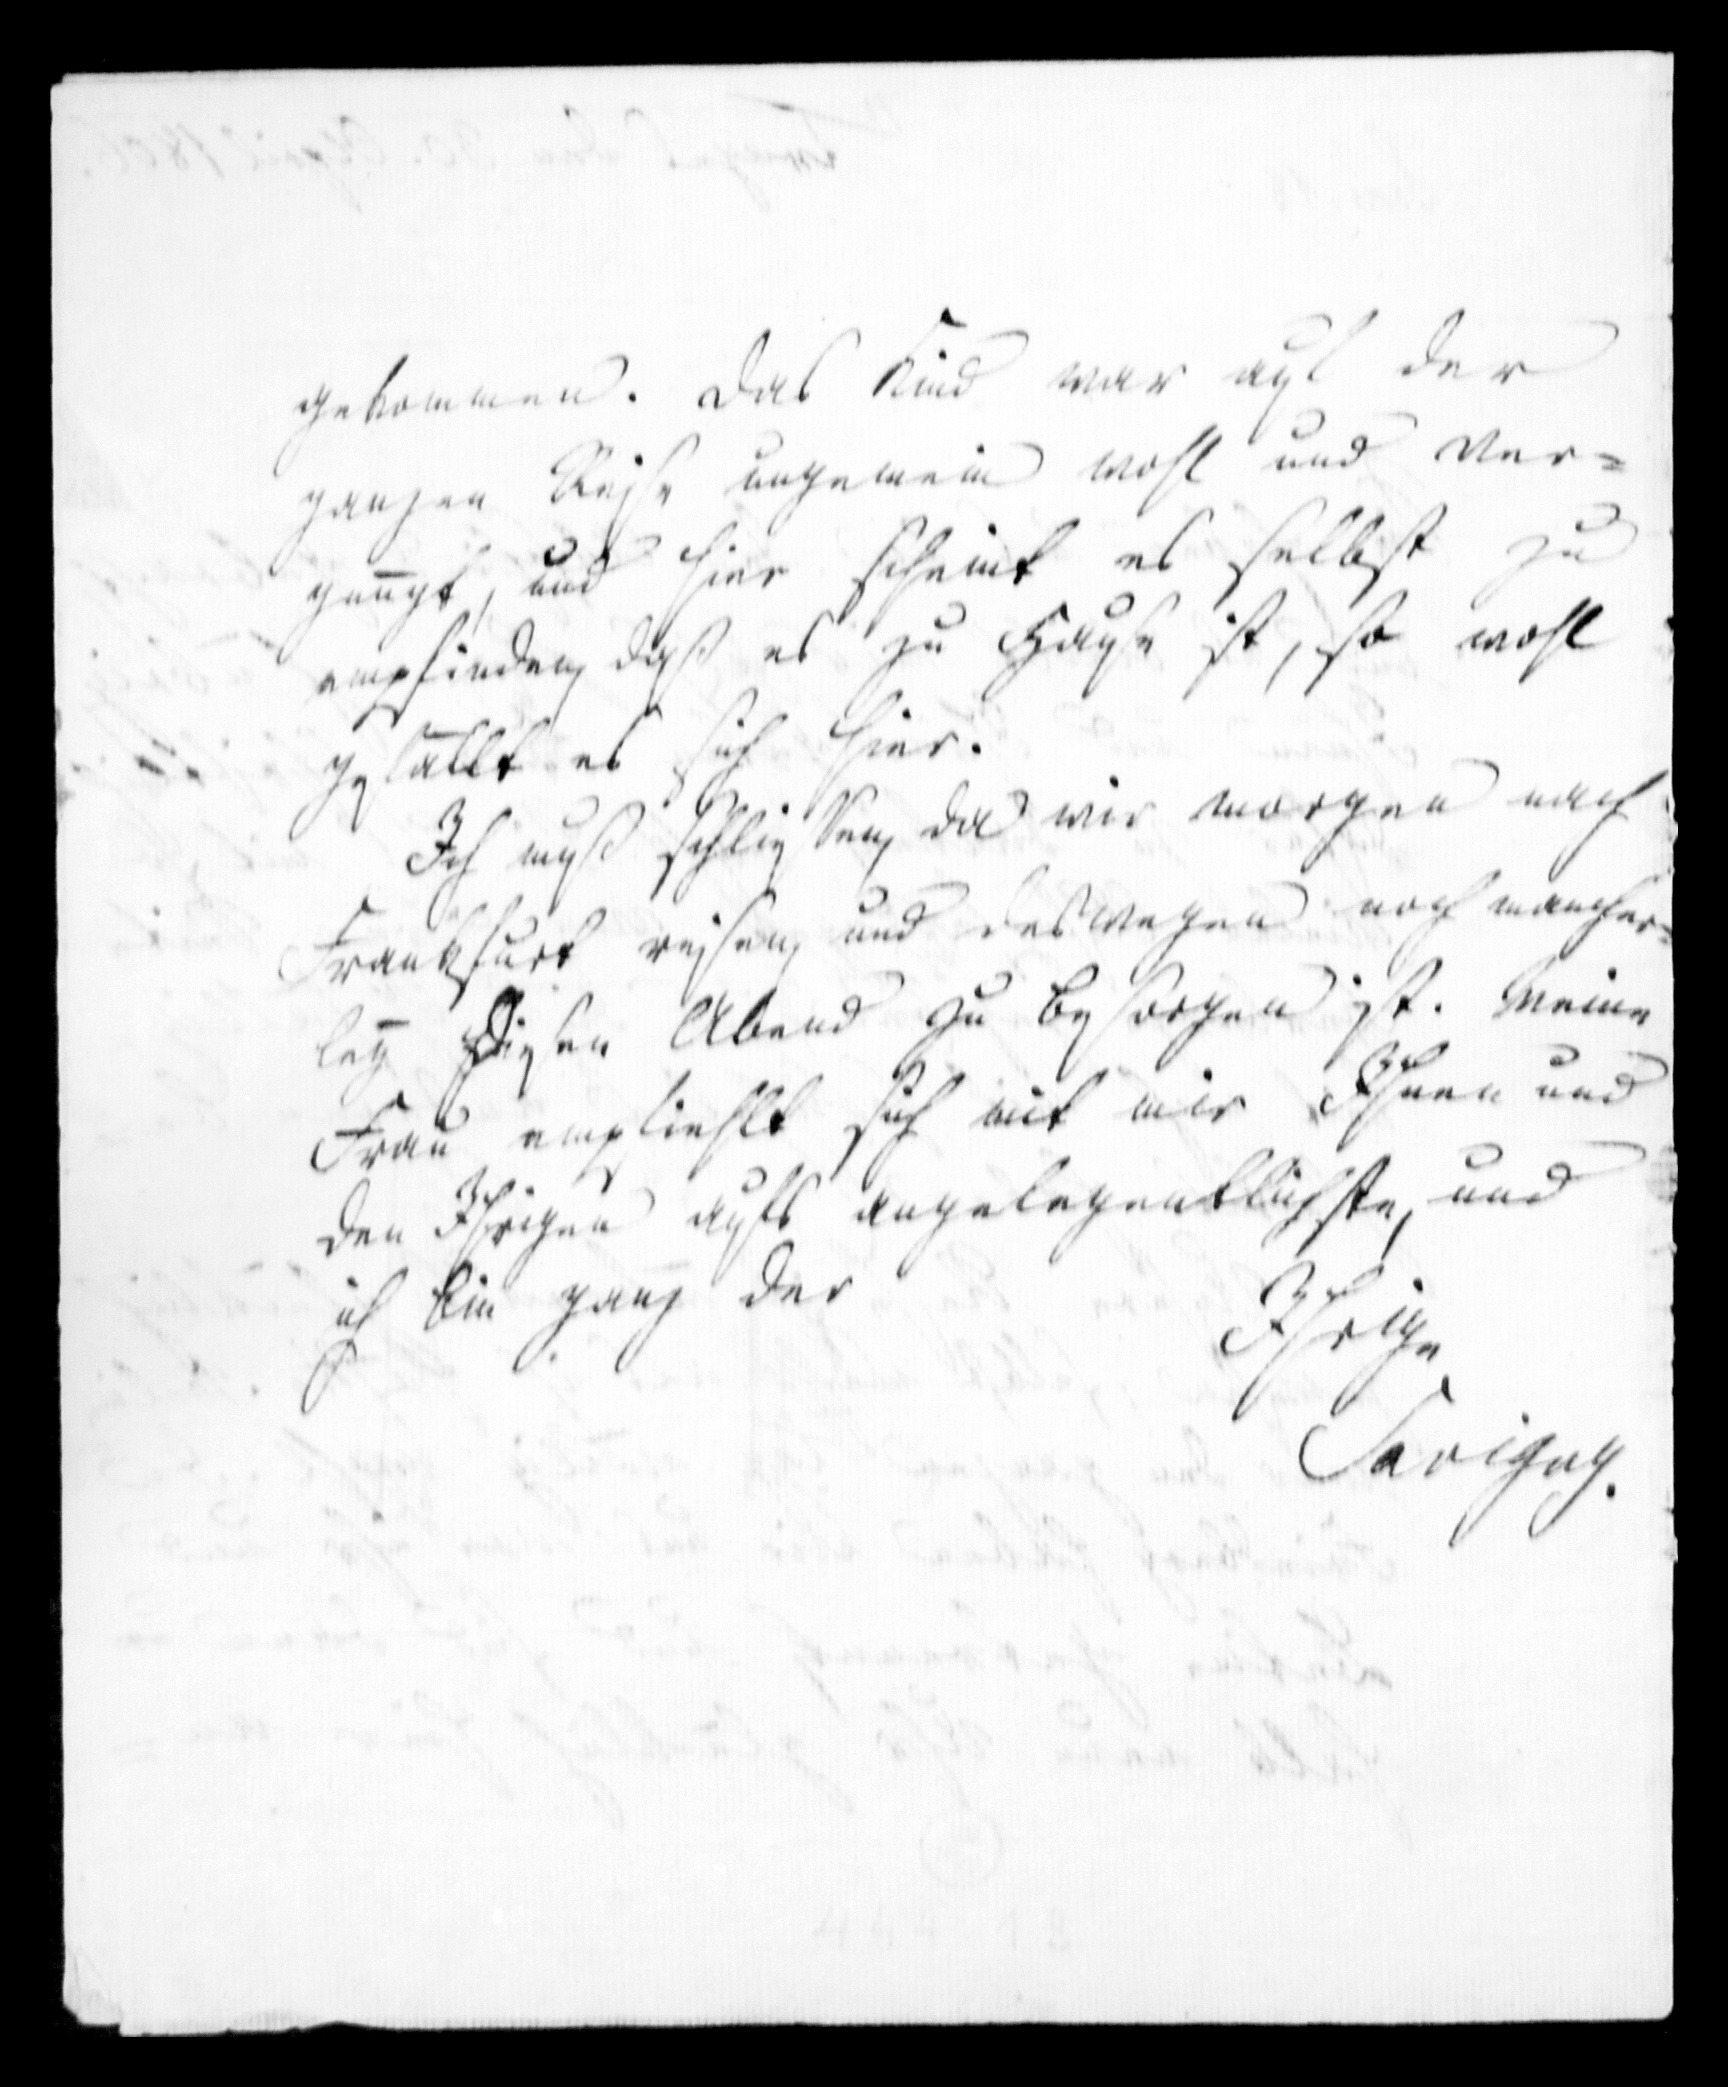 gekommen. Das Kind war auf der
ganzen Reise ungemein wohl und ver=
gnügt, und hier scheint es selbst zu
empfinden, daß es zu Hause ist, so wohl
gefällt es sich hier.
Ich muß schließen, da wir morgen nach
Frankfurt reisen, und deswegen noch mancher=
ley diesen Abend zu besorgen ist. Meine
Frau empfiehlt sich mit mir Ihnen und
den Ihrigen aufs angelegentlichste, und
ich bin ganz der
Ihrige
Savigny.